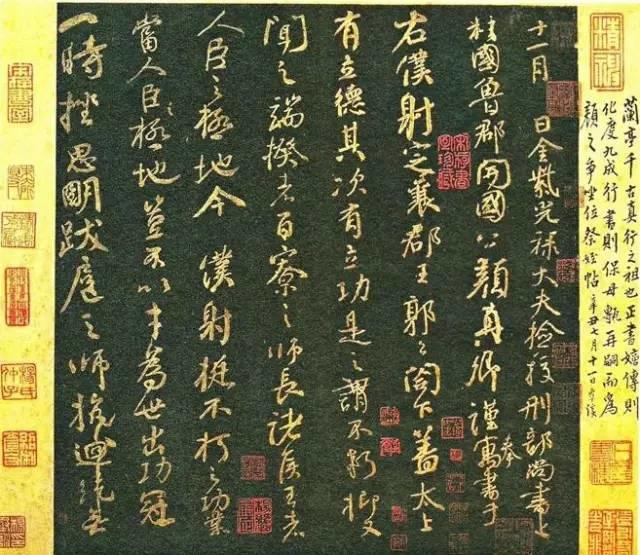 蘭亭千古真行之祖也正書嬗傳則
化度九成行書則保母甎再嗣而為
顏之争坐位祭姪帖 辛丑七月十一日
十一月 日金紫光祿大夫檢挍刑部尚書上
柱國魯郡開國公顏真卿謹奉寓書于
右僕射定襄郡王郭公閤下蓋太上
有立德其次有立功是之謂不朽抑又
聞之端揆者百寮之師長諸侯王者
人臣之極地今僕射挺不朽之功業
當人臣之極地豈不以才為世出功冠
一時挫思明跋扈之師抗迴紇無